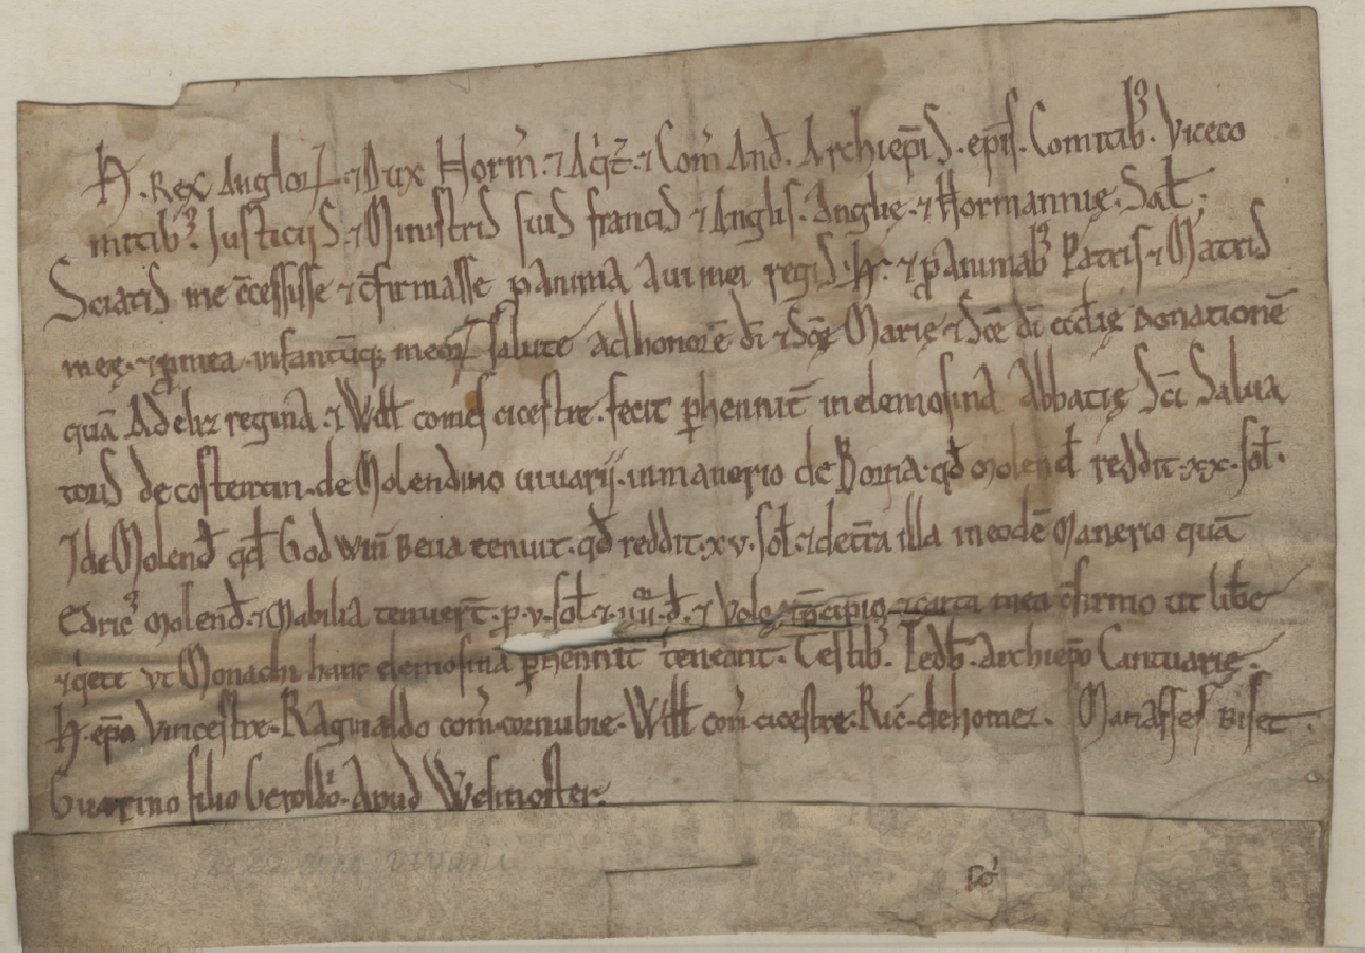 H. Rex Anglor̵ ⁊ Dux Norm̄. ⁊ Aq̓t̄. ⁊ Com̄ And̄. Archiep̄is. ep̄is. Comitibꝫ. Viceco
mitibꝫ. Justiciis. ⁊ Ministris suis francis ⁊ Anglis. Anglię. ⁊ Normannię. Sal̄t.
Sciatis me c̄cessisse ⁊ c̄firmasse ꝓ anima aui mei regis. H. ⁊ ꝓ animabꝫ Patris ⁊ Matris
meę. ⁊ ꝓ mea. infantūq; meoꝝ salute ad honorē dī ⁊ sc̄ę Marię ⁊ sc̄e dī ecclię donationē
quā Adeliz regina. ⁊ Will̄ comes cicestre. fecit ꝑhennit̄ in elemosinā Abbatię Sc̄i Salua
toris de costentin. de Molendino uiuarij. in manerio de Borna. qd̄ molend̄ reddit. xx. sol̄.
⁊ de Molend̄ qd̄ Godwin̄ Beua tenuit. qd̄ reddit. xv. sol̄. ⁊ de t̄ra illa in eodē Manerio quā
Edricꝰ molend̄. ⁊ Mabilia tenuer̄t. ꝓ. v. sol̄. ⁊. iiii. d̄. ⁊ Volo ⁊ p̄cipio ⁊ carta mea c̄firmo ut lib̄e
⁊ q̓ete ut Monachi hanc elemosinā ꝑhennit̄ teneant. Testibꝫ. Tedb̄. Archiep̄o Cantuarię.
H. ep̄o Vincestre. Raginaldo com̄. cornubie. Will̄ com̄. cicestre. Ric̄. de homez. Manasses Biset.
Guarino filio Geroldi. Apud Wesmoster.